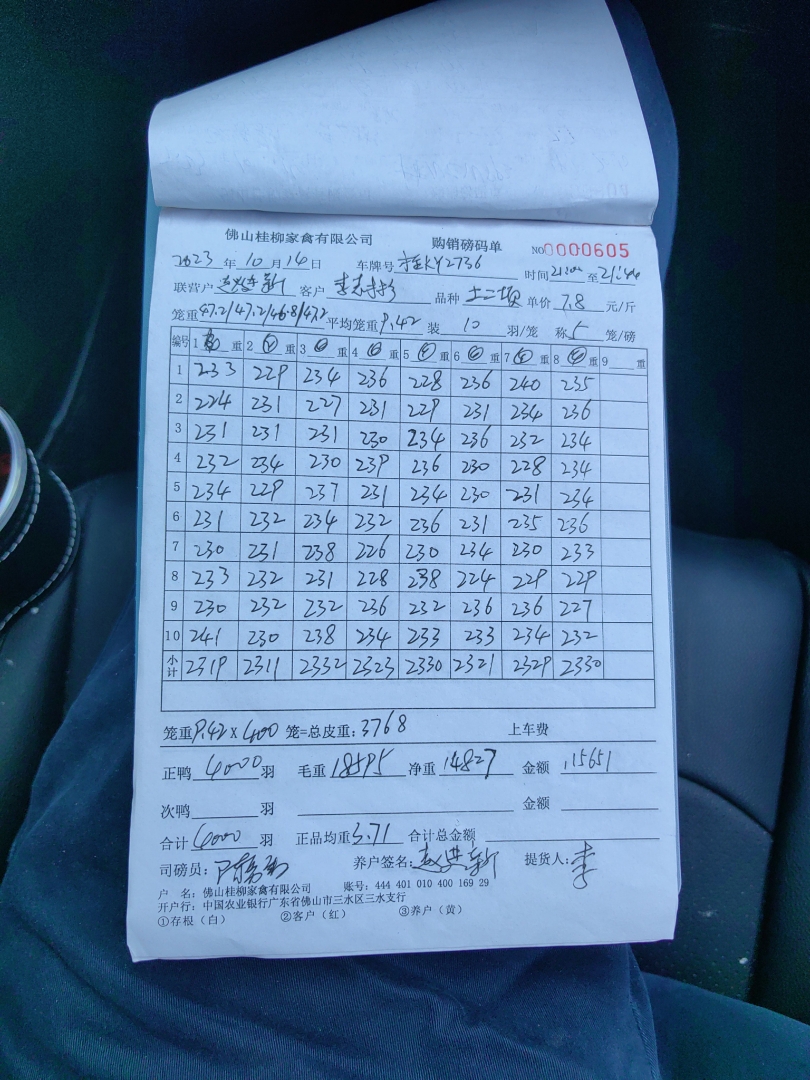 佛山桂柳家禽有限公司 购销磅码单 NO0000605
2023 年 10 月 14 日 车牌号 桂KY2736 时间 21:00 至 21:44
联营户 赵进新 客户 李 品种 土二 单价 7.8 元/斤
笼重 47.2/47.2/46.8/47.2 平均笼重 9.42 装 10 羽/笼 称 5 笼/磅
编号 1 重 2 重 3 重 4 重 5 重 6 重 7 重 8 重 9 重
1 233 229 234 236 228 236 240 235
2 224 231 227 231 229 231 234 236
3 231 231 231 230 234 236 232 234
4 232 234 230 239 236 230 228 234
5 234 229 237 231 234 230 231 234
6 231 232 234 232 236 231 235 236
7 230 231 238 226 230 234 230 233
8 233 232 231 228 238 224 229 229
9 230 232 232 236 232 236 236 227
10 241 230 238 234 233 233 234 232
小计 2319 2311 2332 2323 2330 2321 2329 2330
笼重 9.42 X 400 笼=总皮重: 3768 上车费
正鸭 4000 羽 毛重 18595 净重 14827 金额 115651
次鸭 羽 金额
合计 4000 羽 正品均重 3.71 合计总金额
司磅员: 养户签名: 赵进新 提货人: 李
户 名: 佛山桂柳家禽有限公司 账号: 444 401 010 400 169 29
开户行: 中国农业银行广东省佛山市三水区三水支行
①存根(白) ②客户(红) ③养户(黄)